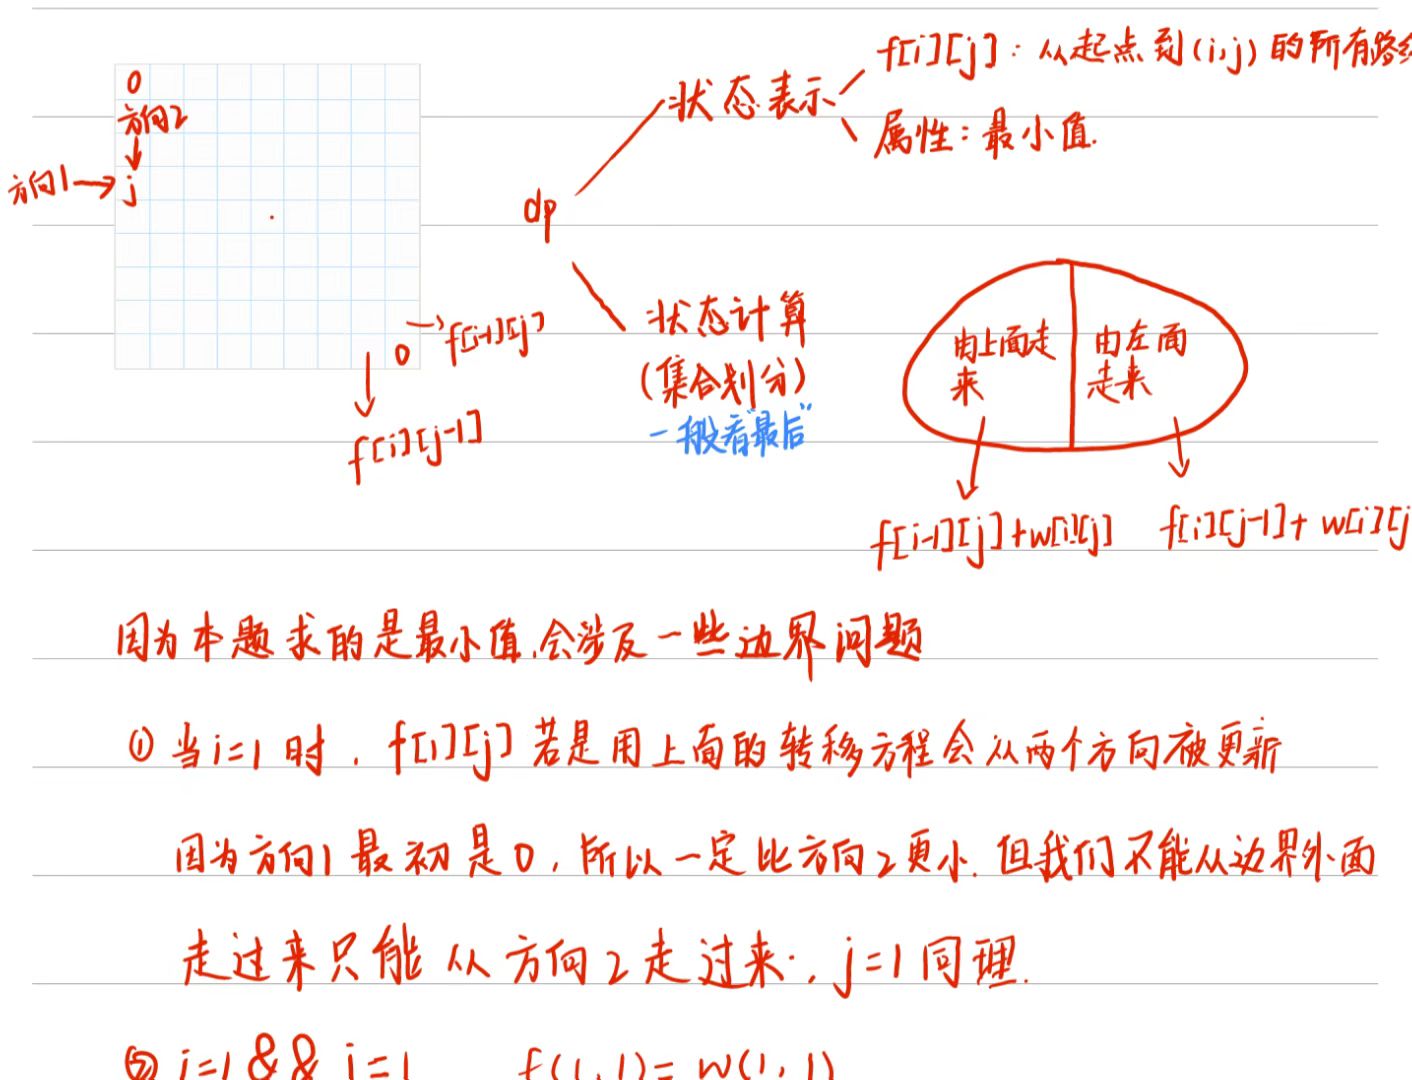 0
方向2
方向1 → j
0 → f[i-1][j]
f[i][j-1]
dp
状态表示
f[i][j]: 从起点到(i,j)的所有路
属性：最小值.
状态计算
(集合划分)
一般看"最后"
由上面走来
由左面走来
f[i-1][j]+w[i][j]
f[i][j-1]+w[i][j
因为本题求的是最小值,会涉及一些边界问题
① 当i=1时, f[1][j]若是用上面的转移方程会从两个方向被更新
因为方向1最初是0,所以一定比方向2更小.但我们不能从边界外面
走过来只能从方向2走过来., j=1同理.
② i=1 && j=1 f(1,1)= w(1,1)